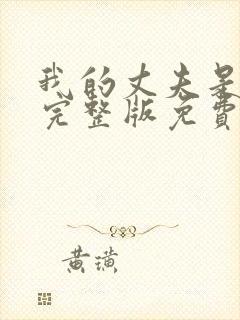 我的丈夫
完整版免費
黃璜